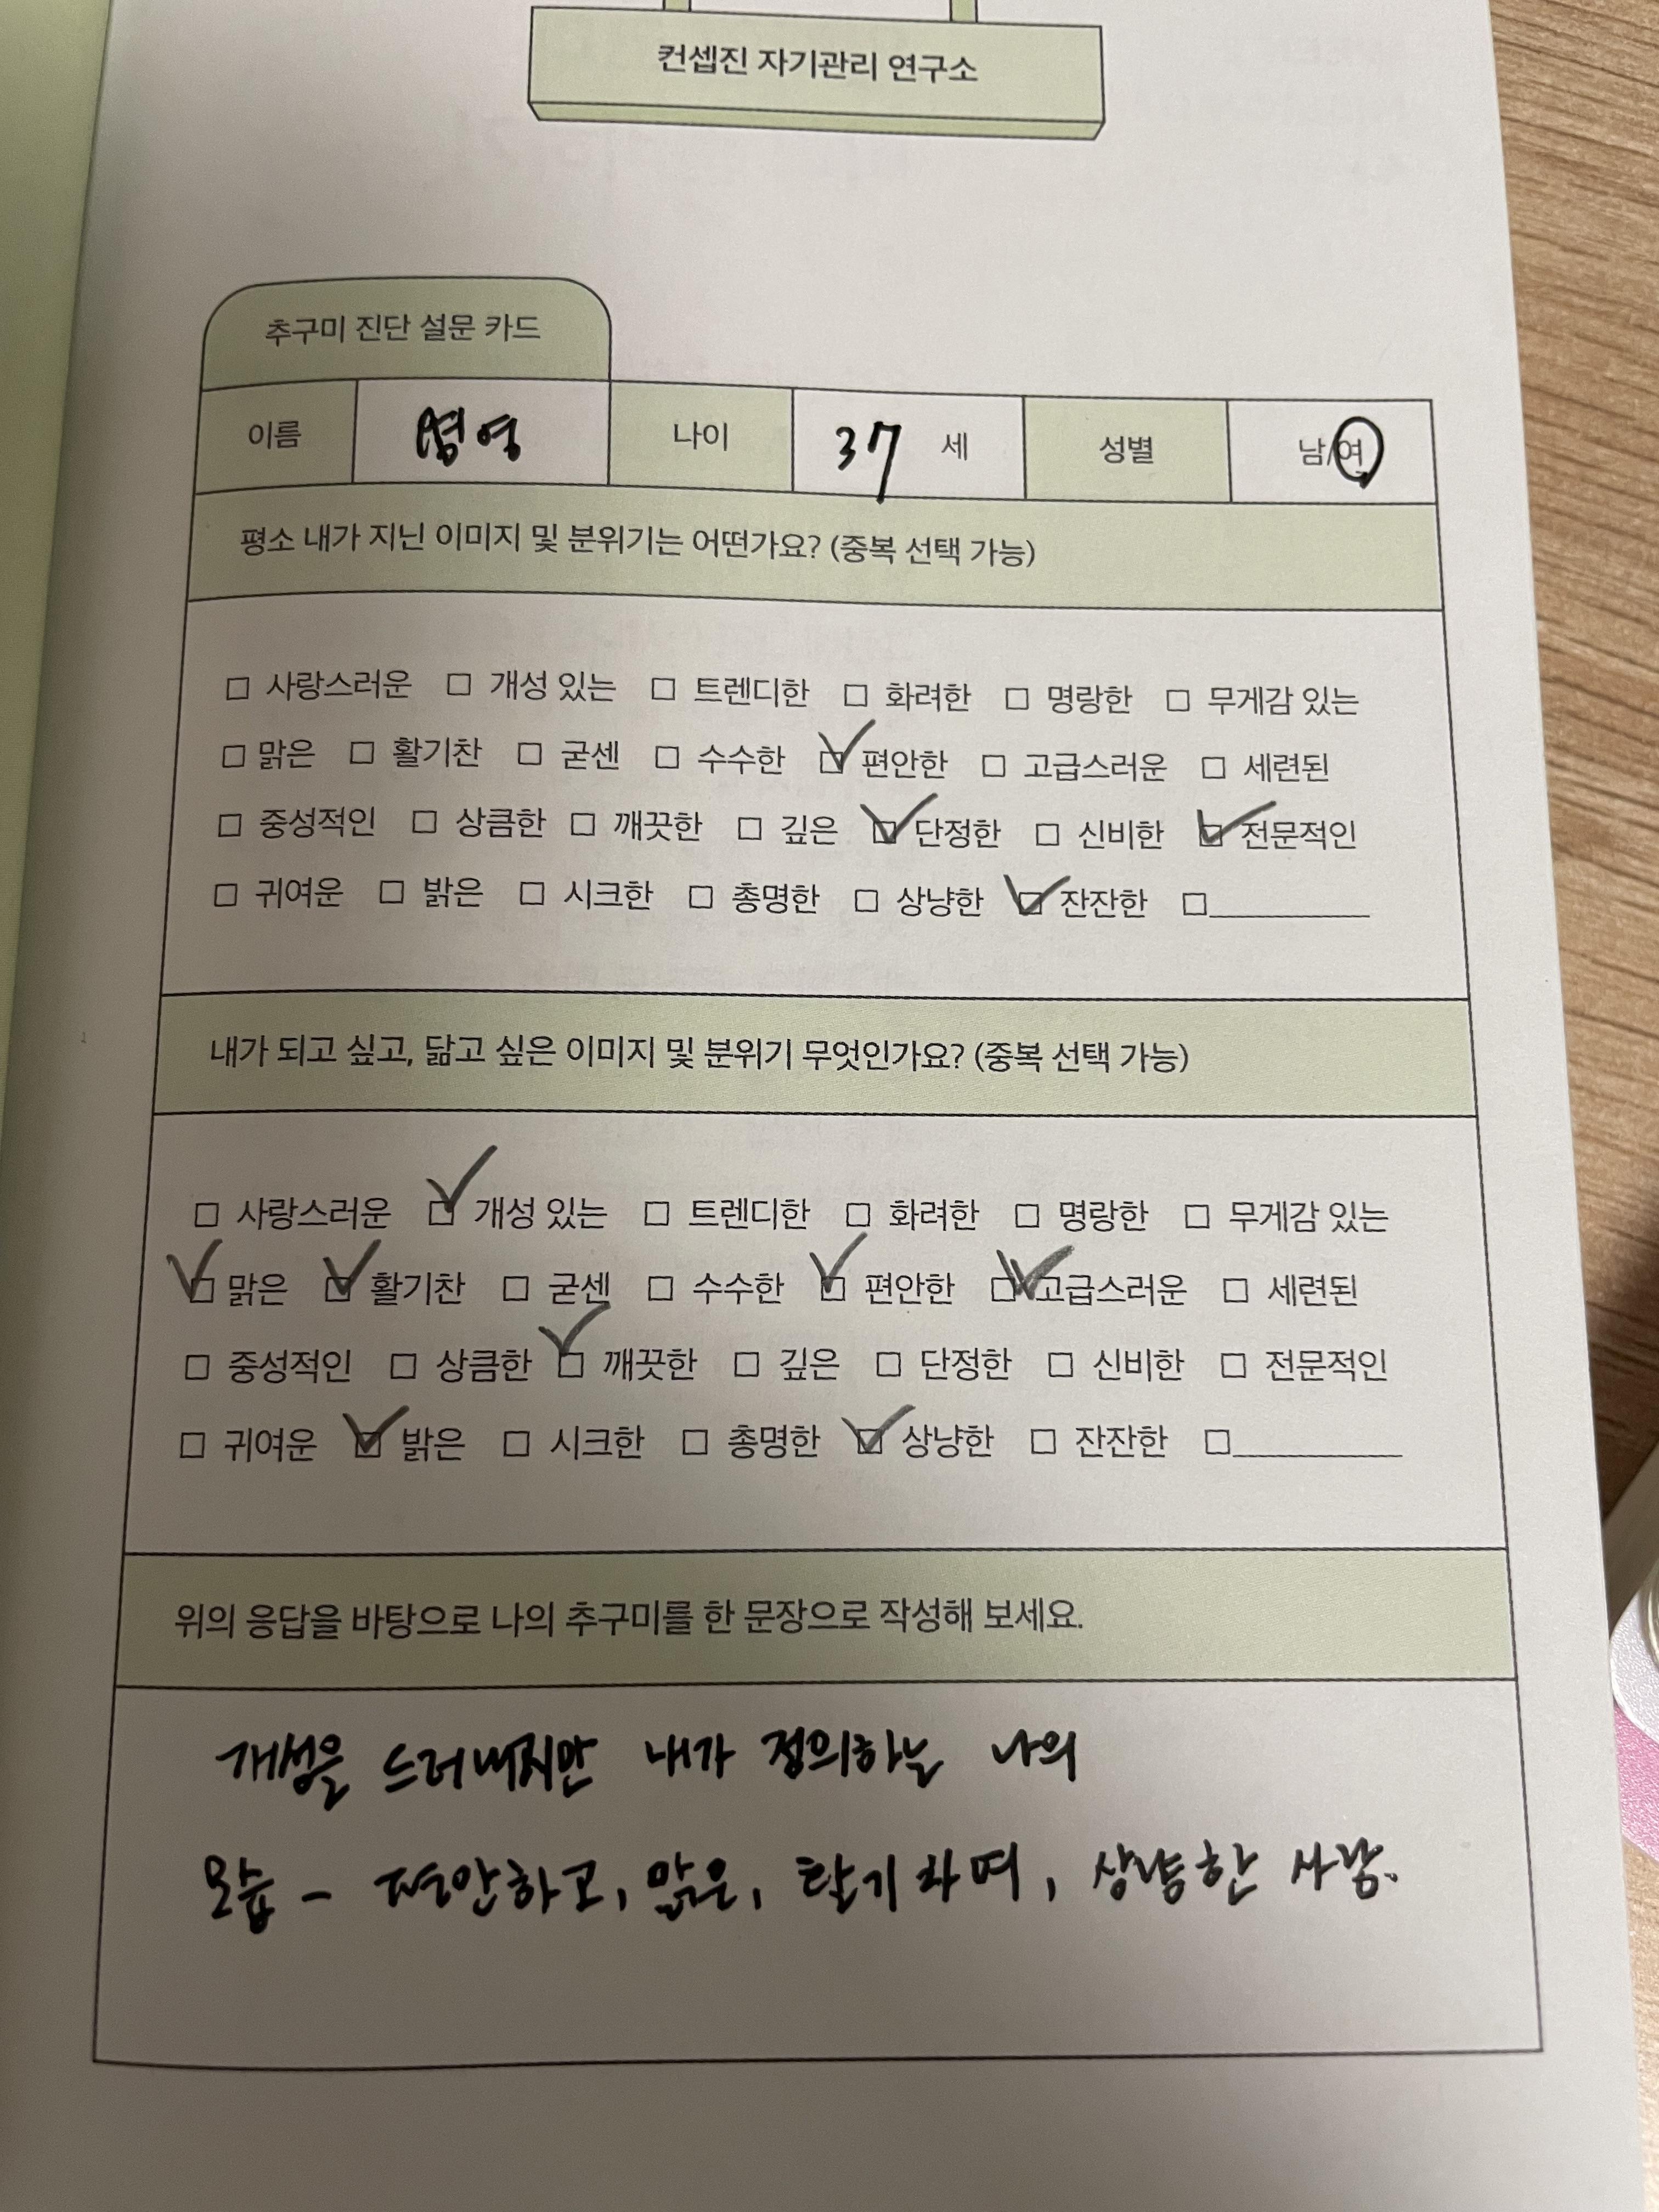 컨셉진 자기관리 연구소
추구미 진단 설문 카드
이름 나이 37 세 성별 남/여
평소 내가 지닌 이미지 및 분위기는 어떤가요? (중복 선택 가능)
□ 사랑스러운 □ 개성 있는 □ 트렌디한 □ 화려한 □ 명랑한 □ 무게감 있는
□ 맑은 □ 활기찬 □ 굳센 □ 수수한 ☑ 편안한 □ 고급스러운 □ 세련된
□ 중성적인 □ 상큼한 □ 깨끗한 □ 깊은 ☑ 단정한 □ 신비한 ☑ 전문적인
□ 귀여운 □ 밝은 □ 시크한 □ 총명한 □ 상냥한 ☑ 잔잔한 □
내가 되고 싶고, 닮고 싶은 이미지 및 분위기 무엇인가요? (중복 선택 가능)
□ 사랑스러운 ☑ 개성 있는 □ 트렌디한 □ 화려한 □ 명랑한 □ 무게감 있는
☑ 맑은 ☑ 활기찬 □ 굳센 □ 수수한 ☑ 편안한 ☑ 고급스러운 □ 세련된
□ 중성적인 □ 상큼한 ☑ 깨끗한 □ 깊은 □ 단정한 □ 신비한 □ 전문적인
□ 귀여운 ☑ 밝은 □ 시크한 □ 총명한 ☑ 상냥한 □ 잔잔한 □
위의 응답을 바탕으로 나의 추구미를 한 문장으로 작성해 보세요.
개성을 드러내지만 내가 정의하는 나의
모습 - 편안하고, 맑은, 활기차며, 상냥한 사람.